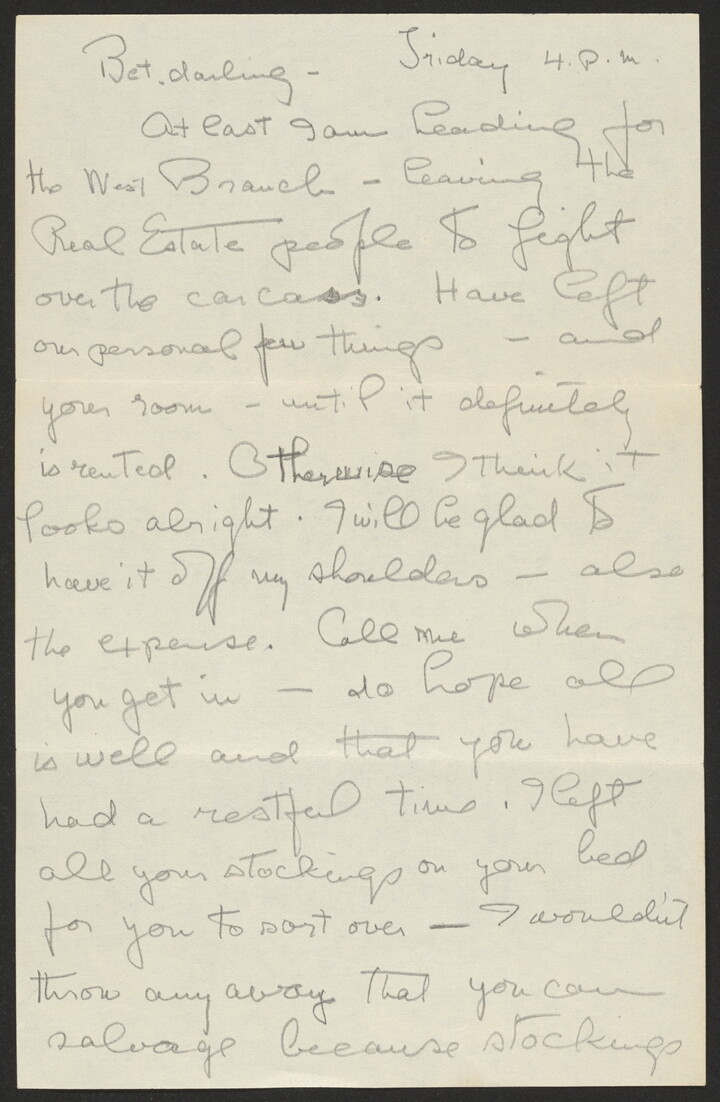 Bet. darling – Friday 4. P. m.
At last I am heading for
the West Branch – leaving the
Real Estate people to fight
over the carcass. Have left
our personal few things – and
your room – until it definitely
is rented. Otherwise I think it
looks alright. I will be glad to
have it off my shoulders – also
the expense. Call me when
you get in – do hope all
is well and that you have
had a restful time. I left
all your stockings on your bed
for you to sort over – I wouldn't
throw any away that you can
salvage because stockings